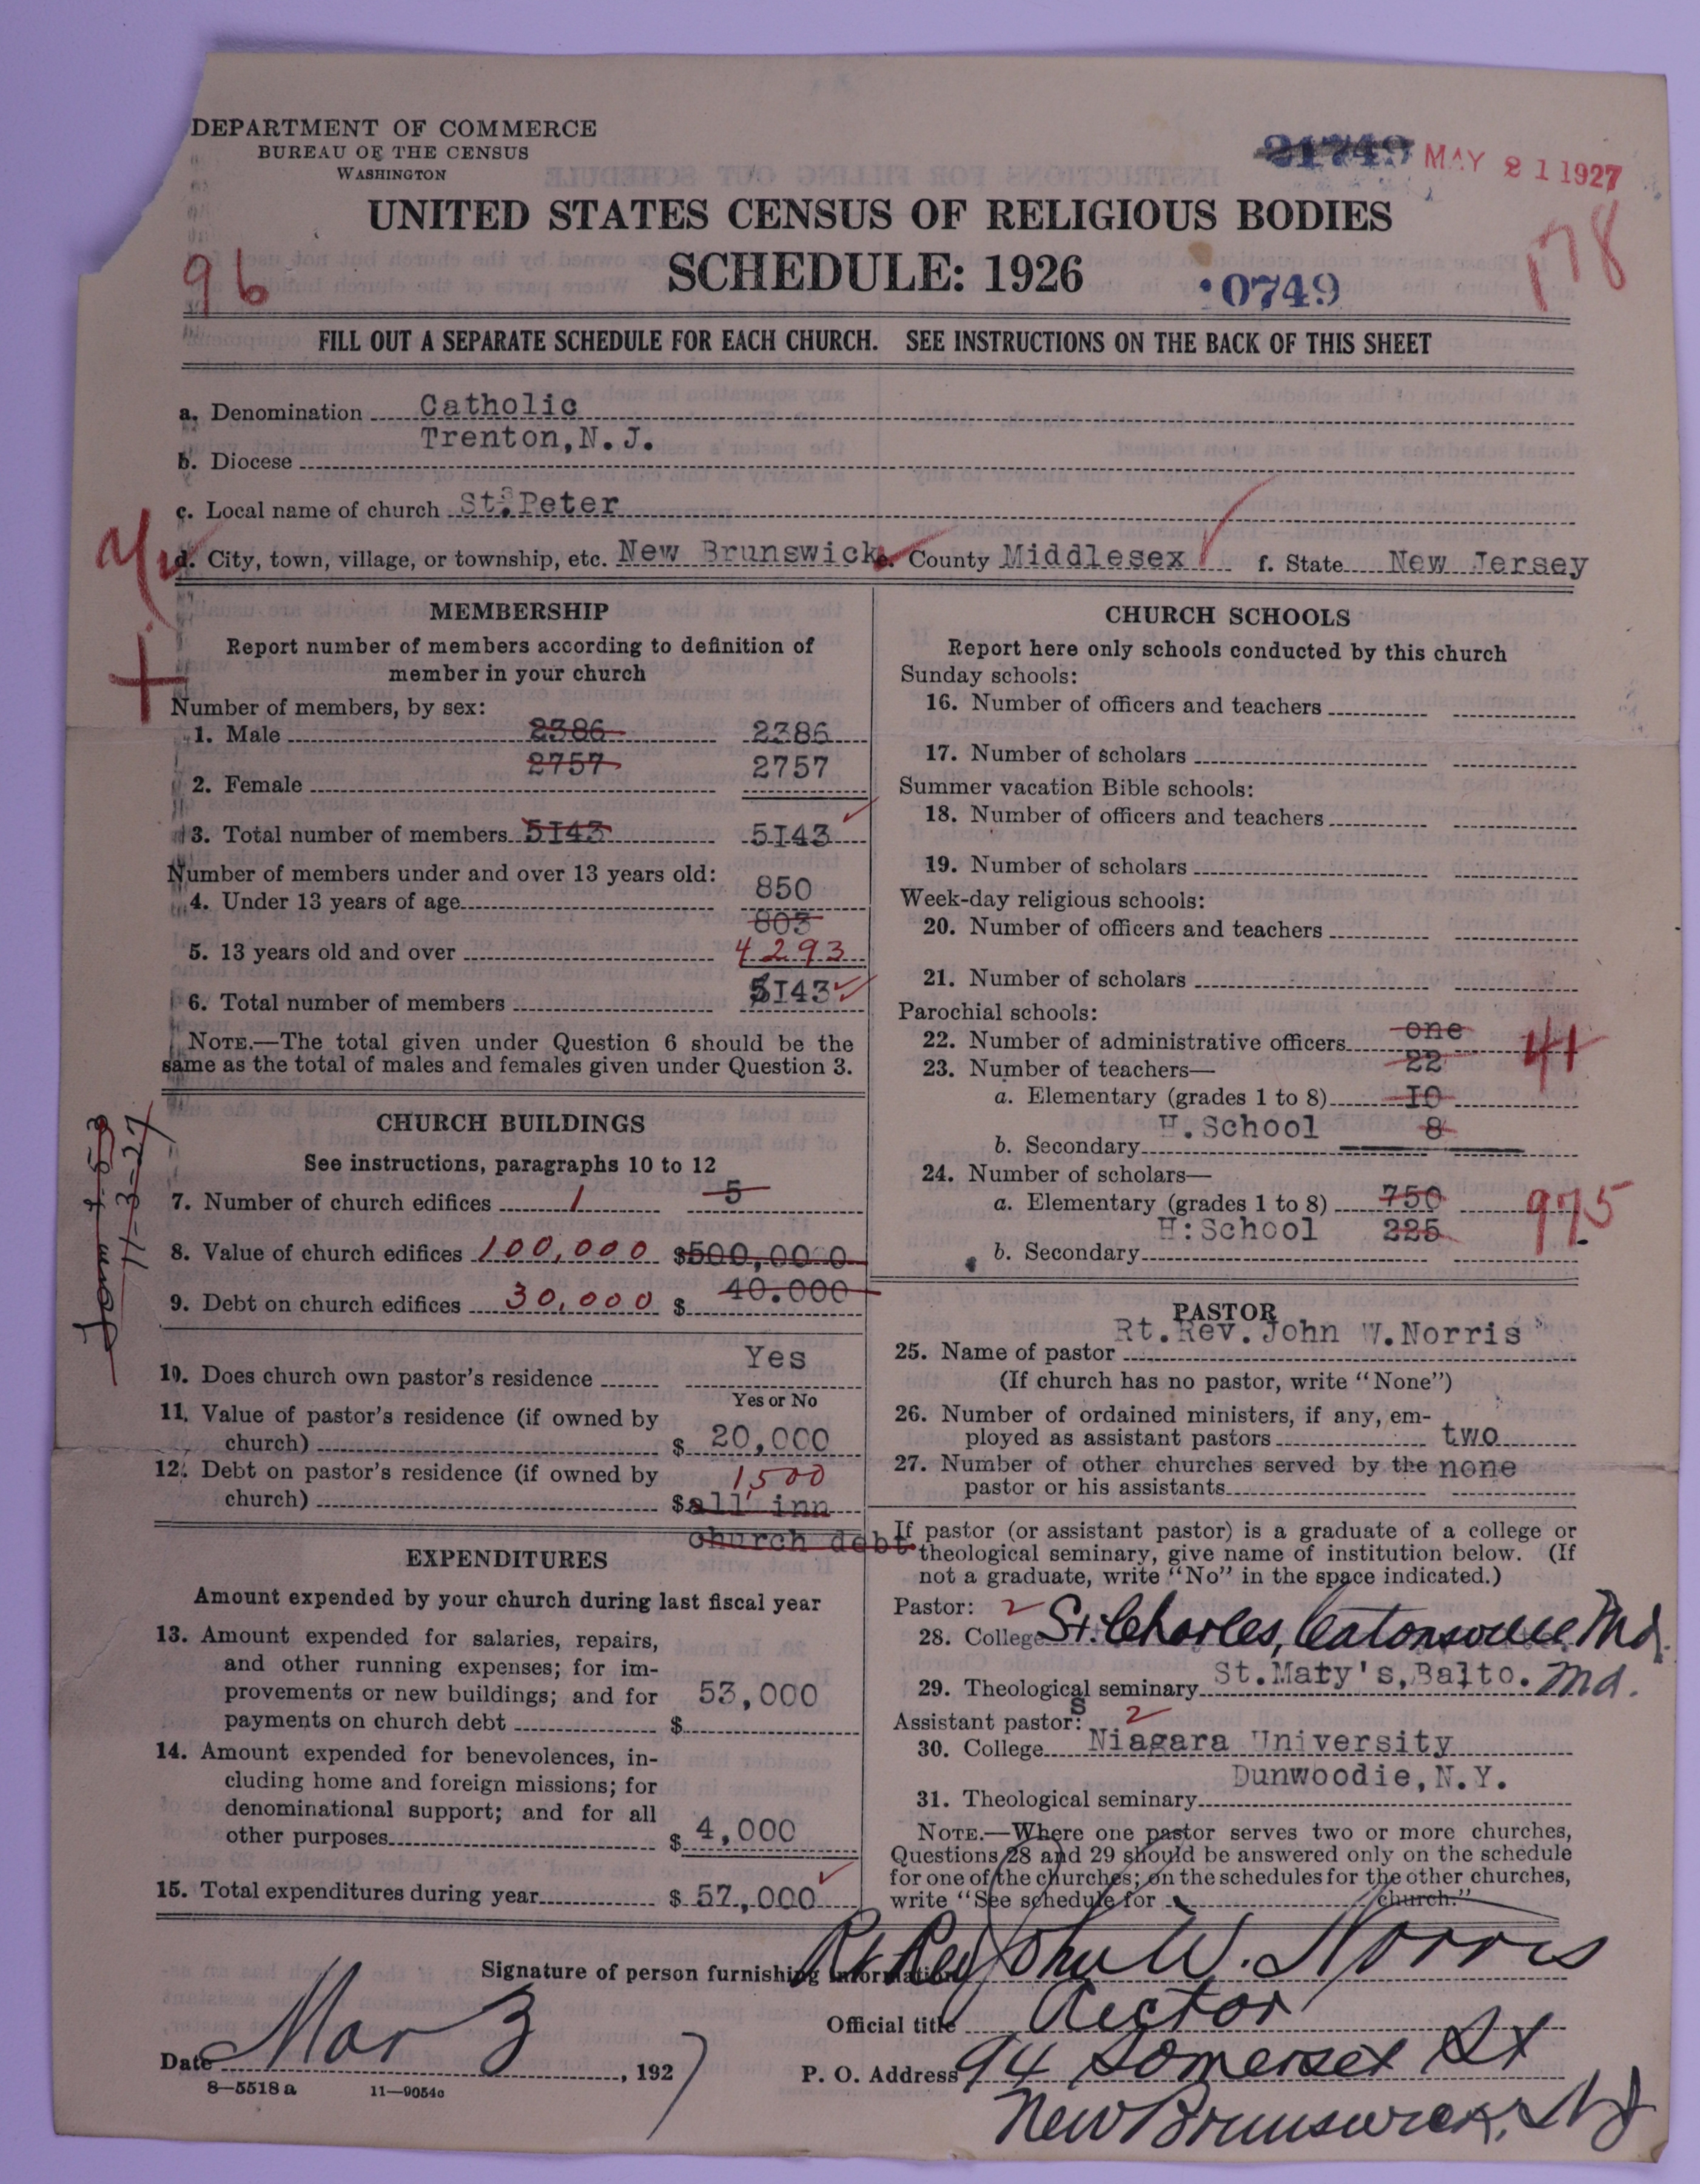 DEPARTMENT OF COMMERCE
BUREAU OF THE CENSUS
WASHINGTON
21749 MAY 21 1927
UNITED STATES CENSUS OF RELIGIOUS BODIES
SCHEDULE: 1926
96
0749
178
FILL OUT A SEPARATE SCHEDULE FOR EACH CHURCH. SEE INSTRUCTIONS ON THE BACK OF THIS SHEET
a. Denomination Catholic
Trenton, N. J.
b. Diocese
c. Local name of church St. Peter
d. City, town, village, or township, etc. New Brunswick e. County Middlesex f. State New Jersey
MEMBERSHIP
Report number of members according to definition of
member in your church
Number of members, by sex:
1. Male 2386 2386
2757 2757
2. Female
3. Total number of members 5143 5143
Number of members under and over 13 years old:
850
4. Under 13 years of age
803
5. 13 years old and over 4293
6. Total number of members 5143
NOTE.—The total given under Question 6 should be the
same as the total of males and females given under Question 3.
CHURCH BUILDINGS
See instructions, paragraphs 10 to 12
7. Number of church edifices 1 5
8. Value of church edifices 100,000 $500,000
9. Debt on church edifices 30,000 $ 40.000
11-3-27
Yes
10. Does church own pastor's residence
Yes or No
11. Value of pastor's residence (if owned by
church) $ 20,000
12. Debt on pastor's residence (if owned by 1,500
church) $ all inn
church debt
EXPENDITURES
Amount expended by your church during last fiscal year
13. Amount expended for salaries, repairs,
and other running expenses; for im-
provements or new buildings; and for 53,000
payments on church debt $
14. Amount expended for benevolences, in-
cluding home and foreign missions; for
denominational support; and for all
other purposes $ 4,000
15. Total expenditures during year $ 57,000
CHURCH SCHOOLS
Report here only schools conducted by this church
Sunday schools:
16. Number of officers and teachers
17. Number of scholars
Summer vacation Bible schools:
18. Number of officers and teachers
19. Number of scholars
Week-day religious schools:
20. Number of officers and teachers
21. Number of scholars
Parochial schools:
22. Number of administrative officers one 41
23. Number of teachers— 22
a. Elementary (grades 1 to 8) 10
b. Secondary H. School 8
24. Number of scholars—
a. Elementary (grades 1 to 8) 750 975
H: School 225
b. Secondary
PASTOR
Rt. Rev. John W. Norris
25. Name of pastor
(If church has no pastor, write "None")
26. Number of ordained ministers, if any, em-
ployed as assistant pastors two
27. Number of other churches served by the none
pastor or his assistants
If pastor (or assistant pastor) is a graduate of a college or
theological seminary, give name of institution below. (If
not a graduate, write "No" in the space indicated.)
Pastor: 2
28. College St. Charles, Catonsville Md.
29. Theological seminary St. Mary's, Balto. Md.
Assistant pastors: 2
30. College Niagara University
Dunwoodie, N.Y.
31. Theological seminary
NOTE.—Where one pastor serves two or more churches,
Questions 28 and 29 should be answered only on the schedule
for one of the churches; on the schedules for the other churches,
write "See schedule for church."
Signature of person furnishing information Rt Rev John W. Norris
Official title Rector
Date Mar 3, 1927
P. O. Address 94 Somerset St
New Brunswick, NJ
8—5518 a 11—9054c